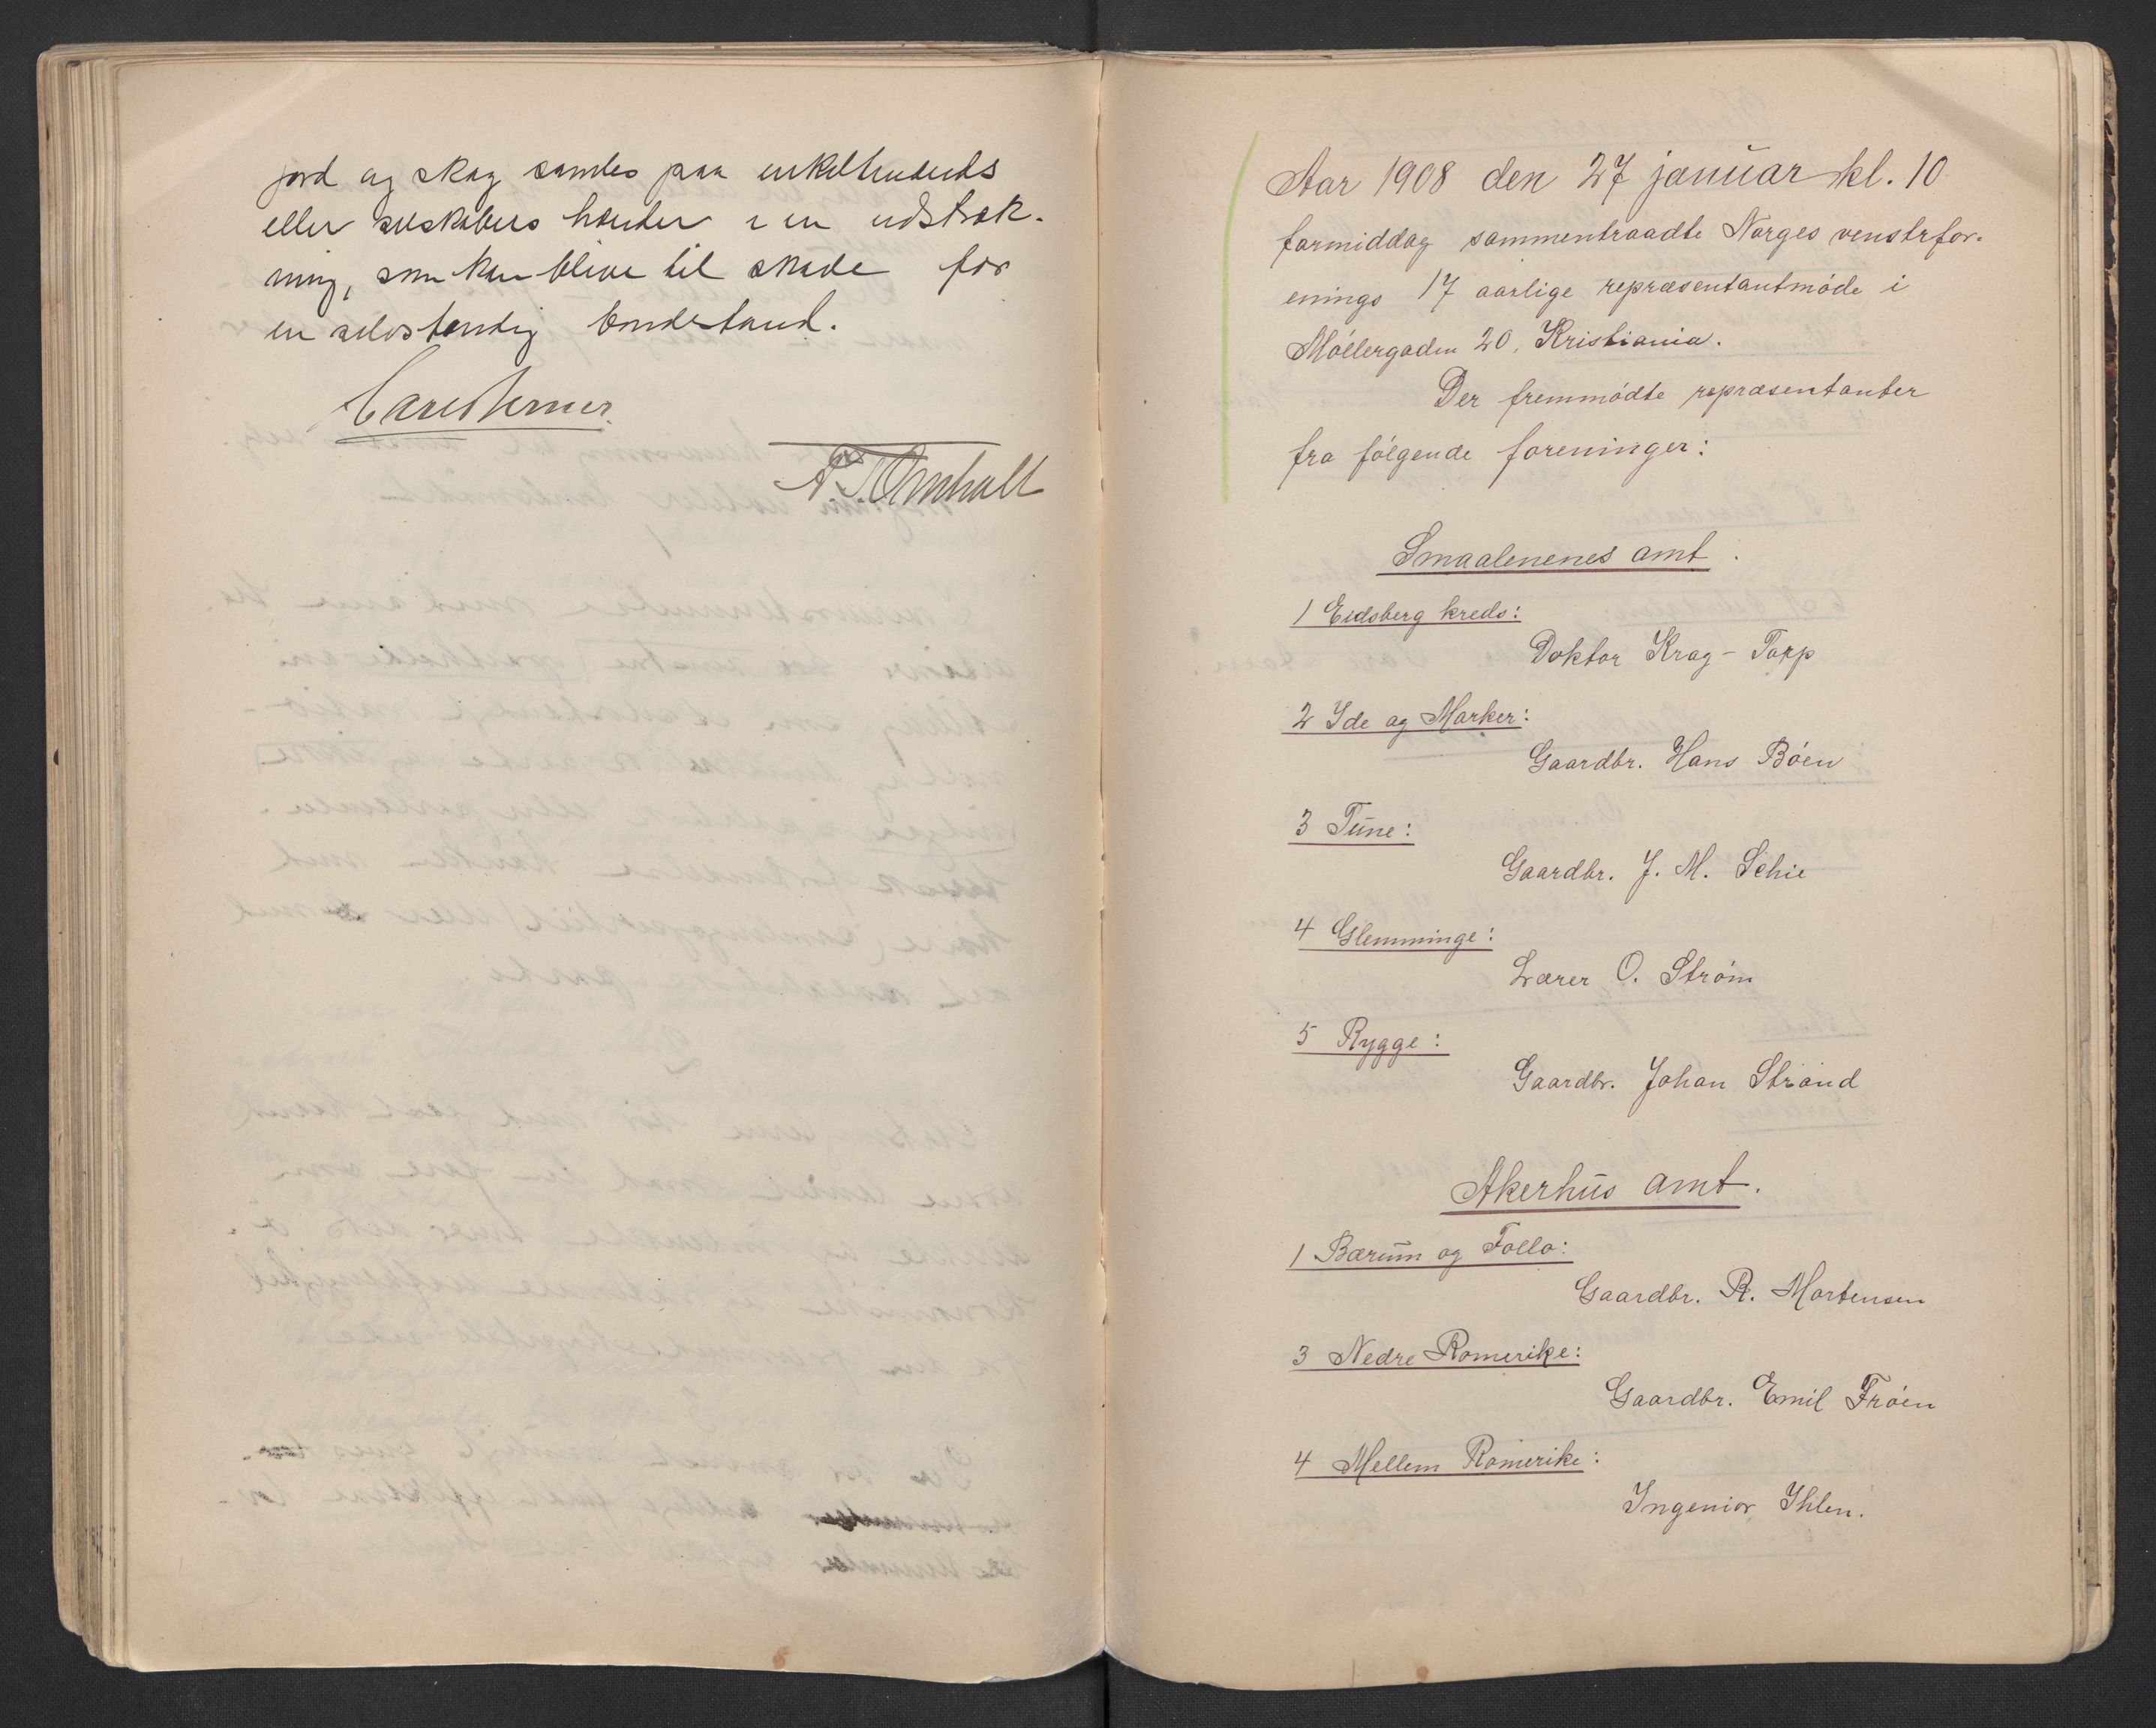 jord og skog samles paa enkeltmands
eller selskabers hænder i en udstræk-
ning, som kan blive til skade for
en selvstændig bondestand.
Carl Berner.
A. T. Omholt
Aar 1908 den 27 januar kl. 10
formiddag sammentraadte Norges venstrefor-
enings 17 aarlige repræsentantmöde i
Möllergaden 20, Kristiania.
Der fremmödte repræsentanter
fra fölgende foreninger:
Smaalenenes amt.
1 Eidsberg kreds:
Doktor Krag-Torp
2 Ide og Marker:
Gaardbr. Hans Böen
3 Tune:
Gaardbr. J. M. Schie
4 Glemminge:
Lærer O. Ström
5 Rygge:
Gaardbr. Johan Strand
Akerhus amt.
1 Bærum og Follo:
Gaardbr. R. Mortensen
3 Nedre Romerike:
Gaardbr. Emil Fröen
4 Mellem Romerike:
Ingeniör Ihlen.